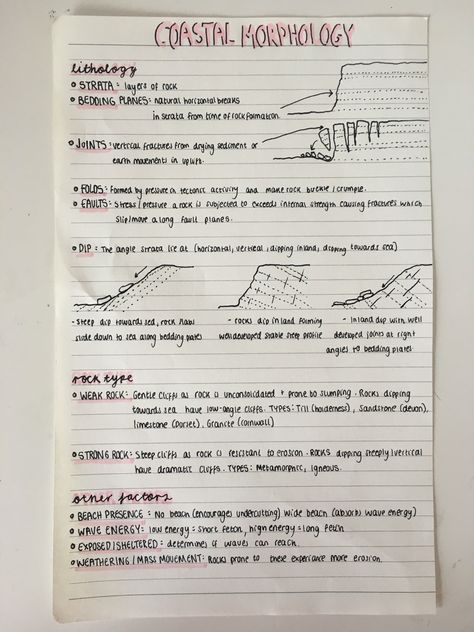 COASTAL MORPHOLOGY
lithology
• STRATA: layers of rock
• BEDDING PLANES: natural horizontal breaks
in strata from time of rock formation.
• JOINTS: vertical fractures from drying sediment or
earth movements in uplift.
• FOLDS: Formed by pressure in tectonic activity and make rock buckle / crumple.
• FAULTS: Stress/pressure a rock is subjected to exceeds internal strength causing fractures which
slip/move along fault planes.
• DIP: The angle strata lie at (horizontal, vertical, dipping inland, dipping towards sea)
- steep dip towards sea, rock slabs
slide down to sea along bedding plates
- rocks dip inland forming
well developed stable steep profile
- inland dip with well
developed joints at right
angles to bedding plates
rock type
• WEAK ROCK: Gentle cliffs as rock is unconsolidated + prone to slumping. Rocks dipping
towards sea have low-angle cliffs. TYPES: Till (holderness), Sandstone (devon),
limestone (Dorset), Granite (cornwall)
• STRONG ROCK: Steep cliffs as rock is resistant to erosion. Rocks dipping steeply/vertical
have dramatic cliffs. TYPES: Metamorphic, Igneous.
other factors
• BEACH PRESENCE: No beach (encourages undercutting) wide beach (absorbs wave energy)
• WAVE ENERGY: low energy = short fetch, high energy = long fetch
• EXPOSED/SHELTERED: determines if waves can reach.
• WEATHERING / MASS MOVEMENT: Rocks prone to these experience more erosion.